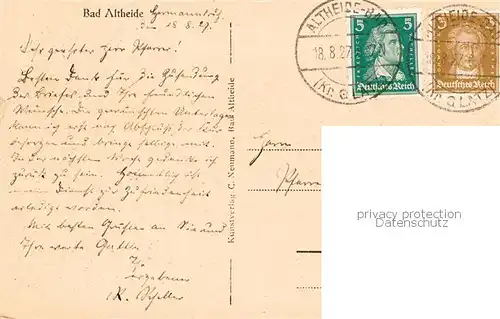 Bad Altheide Hermannstag
den 18.8.27.
Sehr geehrter Herr Pfarrer!
Besten Dank für die Zusendung
des Briefes und Ihre freundlichen
Wünsche. Die gewünschten Unterlagen
kann ich erst nach Abschluß der Kur
und bringe selbige mit.
In der nächsten Woche gedenke ich
zurück zu sein. Hoffentlich ist
mein Dienst zur Zufriedenheit
erledigt worden.
Mit besten Grüßen an Sie und
Ihre werte Gattin
Ihr
ergebener
K. Schiller
Kunstverlag C. Neumann, Bad Altheide
ALTHEIDE-BAD
18.8.27
(Kr. GLATZ)
5 5
FRIEDRICH SCHILLER
Deutsches Reich
ALTHEIDE
(Kr. GLATZ)
3
Deutsches Reich
Herrn
Pfarrer
privacy protection
Datenschutz